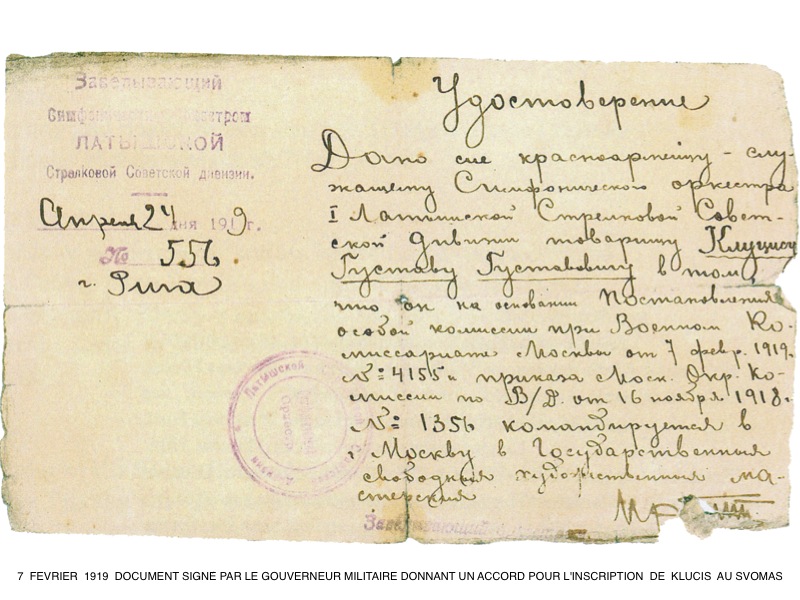 Заведывающий
Симфоническим оркестром
ЛАТЫШСКОЙ
Стрелковой Советской дивизии.
Апреля 24 дня 1919 г.
№ 556
г. Рига
Удостоверение
Дано сие красноармейцу – слу-
жащему Симфонического оркестра
I Латышской Стрелковой Совет-
ской дивизии товарищу Клуцису
Густаву Густавовичу в том,
что он на основании Постановления
особой комиссии при Военном Ко-
миссариате Москвы от 7 февр. 1919.
№ 4155 и приказа Моск. Окр. Ко-
миссии по В/Д. от 16 ноября 1918.
№ 1356 командируется в
г. Москву в Государственныя
свободныя художественныя ма-
стерския
Заведывающий
Латышской
7 FEVRIER 1919 DOCUMENT SIGNE PAR LE GOUVERNEUR MILITAIRE DONNANT UN ACCORD POUR L'INSCRIPTION DE KLUCIS AU SVOMAS